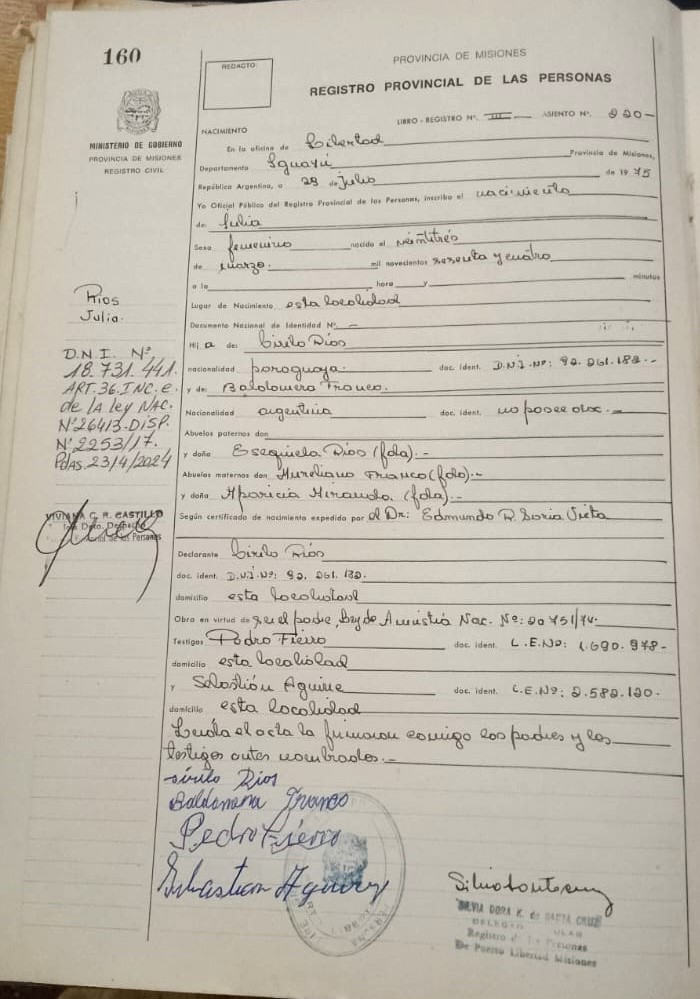 160
REDACTO:
PROVINCIA DE MISIONES
REGISTRO PROVINCIAL DE LAS PERSONAS
LIBRO - REGISTRO Nº. III ASIENTO Nº. 220-
MINISTERIO DE GOBIERNO
PROVINCIA DE MISIONES
REGISTRO CIVIL
NACIMIENTO
En la oficina de Libertad
Departamento Iguazú Provincia de Misiones,
República Argentina, a 28 de Julio de 1975
Yo Oficial Público del Registro Provincial de las Personas, inscribo el nacimiento
de: Julia
Sexo femenino nacido el veintitrés
de marzo. mil novecientos sesenta y cuatro
a la hora y minutos
Lugar de Nacimiento esta localidad
Documento Nacional de Identidad Nº. -
Hij a de: Cirilo Ríos
nacionalidad paraguaya. doc. ident. D.N.I. Nº: 92. 261.182.-
y de: Baldomera Franco.
Nacionalidad argentina doc. ident. no posee doc.-
Abuelos paternos don
y doña Esequiela Ríos (fda).-
Abuelos maternos don Aureliano Franco (fdo).-
y doña Aparicia Miranda (fda).-
Según certificado de nacimiento expedido por el Dr: Edmundo R. Soria Vieta
Declarante Cirilo Ríos
doc. ident. D.N.I. Nº: 92. 261.182.
domicilio esta localidad
Obra en virtud de ser el padre, Ley de Amnistía Nac. Nº: 20751/74.
Testigos Pedro Fierro doc. ident. L.E. Nº: 1.690.978-
domicilio esta localidad
y Sebastián Aguirre doc. ident. L.E. Nº: 2.582.120.
domicilio esta localidad
Leída el acta la firmaron conmigo los padres y los
testigos antes nombrados.-
Ríos
Julia.
D.N.I. Nº
18.731.441.
ART.36.INC.e.
de la ley NAC.
Nº26413-DISP.
Nº2253/17.
Pdas.23/4/2024
VIVIANA G. R. CASTILLO
Dpto. Despacho
de las Personas
Cirilo Rios
Baldomera Franco
Pedro Fierro
Sebastian Aguirre
SILVIA DORA K. de SANTA CRUZ
Registro de las Personas
De Puerto Libertad Misiones